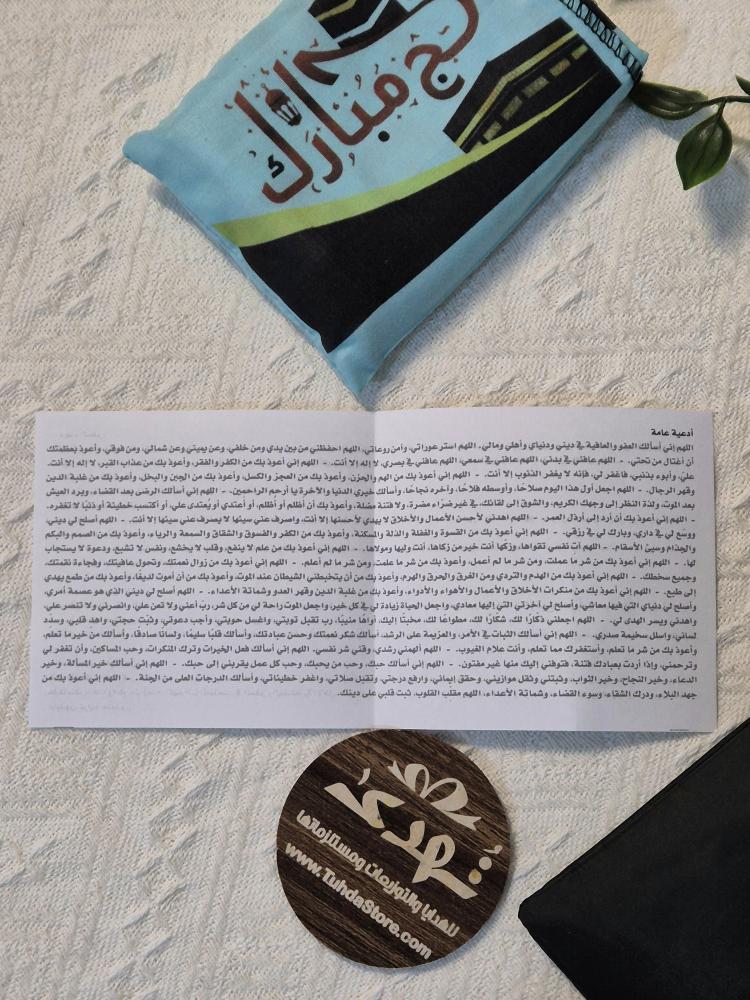 حج مبارك
أدعية عامة
اللهم إني أسألك العفو والعافية في ديني ودنياي وأهلي ومالي، اللهم استر عوراتي، وآمن روعاتي، اللهم احفظني من بين يدي ومن خلفي، وعن يميني وعن شمالي، ومن فوقي، وأعوذ بعظمتك
أن أغتال من تحتي. - اللهم عافني في بدني، اللهم عافني في سمعي، اللهم عافني في بصري، لا إله إلا أنت. - اللهم إني أعوذ بك من الكفر والفقر، وأعوذ بك من عذاب القبر، لا إله إلا أنت.
علي، وأبوء بذنبي، فاغفر لي، فإنه لا يغفر الذنوب إلا أنت. - اللهم إني أعوذ بك من الهم والحزن، وأعوذ بك من العجز والكسل، وأعوذ بك من الجبن والبخل، وأعوذ بك من غلبة الدين
وقهر الرجال. - اللهم اجعل أول هذا اليوم صلاحًا، وأوسطه فلاحًا، وآخره نجاحًا، وأسألك خيري الدنيا والآخرة يا أرحم الراحمين. - اللهم إني أسألك الرضى بعد القضاء، وبرد العيش
بعد الموت، ولذة النظر إلى وجهك الكريم، والشوق إلى لقائك، في غير ضراء مضرة، ولا فتنة مضلة، وأعوذ بك أن أظلم أو أظلم، أو أعتدي أو يُعتدى علي، أو أكتسب خطيئة أو ذنبًا لا تغفره.
- اللهم إني أعوذ بك أن أرد إلى أرذل العمر. - اللهم اهدني لأحسن الأعمال والأخلاق لا يهدي لأحسنها إلا أنت، واصرف عني سيئها لا يصرف عني سيئها إلا أنت. - اللهم أصلح لي ديني،
ووسّع لي في داري، وبارك لي في رزقي. - اللهم إني أعوذ بك من القسوة والغفلة والذلة والمسكنة، وأعوذ بك من الكفر والفسوق والشقاق والسمعة والرياء، وأعوذ بك من الصمم والبكم
والجذام وسيئ الأسقام. - اللهم آت نفسي تقواها، وزكها أنت خير من زكاها، أنت وليها ومولاها. - اللهم إني أعوذ بك من علم لا ينفع، وقلب لا يخشع، ونفس لا تشبع، ودعوة لا يستجاب
لها. - اللهم إني أعوذ بك من شر ما عملت، ومن شر ما لم أعمل، وأعوذ بك من شر ما علمت ومن شر ما لم أعلم. - اللهم إني أعوذ بك من زوال نعمتك، وتحول عافيتك، وفجاءة نقمتك،
وجميع سخطك. - اللهم إني أعوذ بك من الهدم والتردي ومن الغرق والحرق والهرم، وأعوذ بك من أن يتخبطني الشيطان عند الموت، وأعوذ بك من أن أموت لديغًا، وأعوذ بك من طمع يهدي
إلى طبع. - اللهم إني أعوذ بك من منكرات الأخلاق والأعمال والأهواء والأدواء، وأعوذ بك من غلبة الدين وقهر العدو وشماتة الأعداء. - اللهم أصلح لي ديني الذي هو عصمة أمري،
وأصلح لي دنياي التي فيها معاشي، وأصلح لي آخرتي التي إليها معادي، واجعل الحياة زيادة لي في كل خير، واجعل الموت راحة لي من كل شر، ربّ أعني ولا تعن علي، وانصرني ولا تنصر علي،
واهدني ويسر الهدى لي. - اللهم اجعلني ذكارًا لك، شكارًا لك، مطواعًا لك، مخبتًا إليك أواهًا منيبًا، رب تقبل توبتي، واغسل حوبتي، وأجب دعوتي، وثبت حجتي، واهد قلبي، وسدد
لساني، واسلل سخيمة صدري. - اللهم إني أسألك الثبات في الأمر، والعزيمة على الرشد، أسألك شكر نعمتك وحسن عبادتك، وأسألك قلبًا سليمًا، ولسانا صادقا، وأسألك من خير ما تعلم،
وأعوذ بك من شر ما تعلم، وأستغفرك مما تعلم، وأنت علام الغيوب. - اللهم ألهمني رشدي وقني شر نفسي. - اللهم إني أسألك فعل الخيرات وترك المنكرات، وحب المساكين، وأن تغفر لي
وترحمني، وإذا أردت بعبادك فتنة، فتوفني إليك منها غير مفتون. - اللهم إني أسألك حبك، وحب من يحبك، وحب كل عمل يقربني إلى حبك. - اللهم إني أسألك خير المسألة، وخير
الدعاء، وخير النجاح، وخير الثواب، وثبتني وثقل موازيني، وحقق إيماني، وارفع درجتي، وتقبل صلاتي، واغفر خطيئاتي، وأسألك الدرجات العلى من الجنة. - اللهم إني أعوذ بك من
جهد البلاء، ودرك الشقاء، وسوء القضاء، وشماتة الأعداء، اللهم مقلب القلوب، ثبت قلبي على دينك.
تُهدى
للهدايا والتوزيعات ومستلزماتها
www.TuhdaStore.com